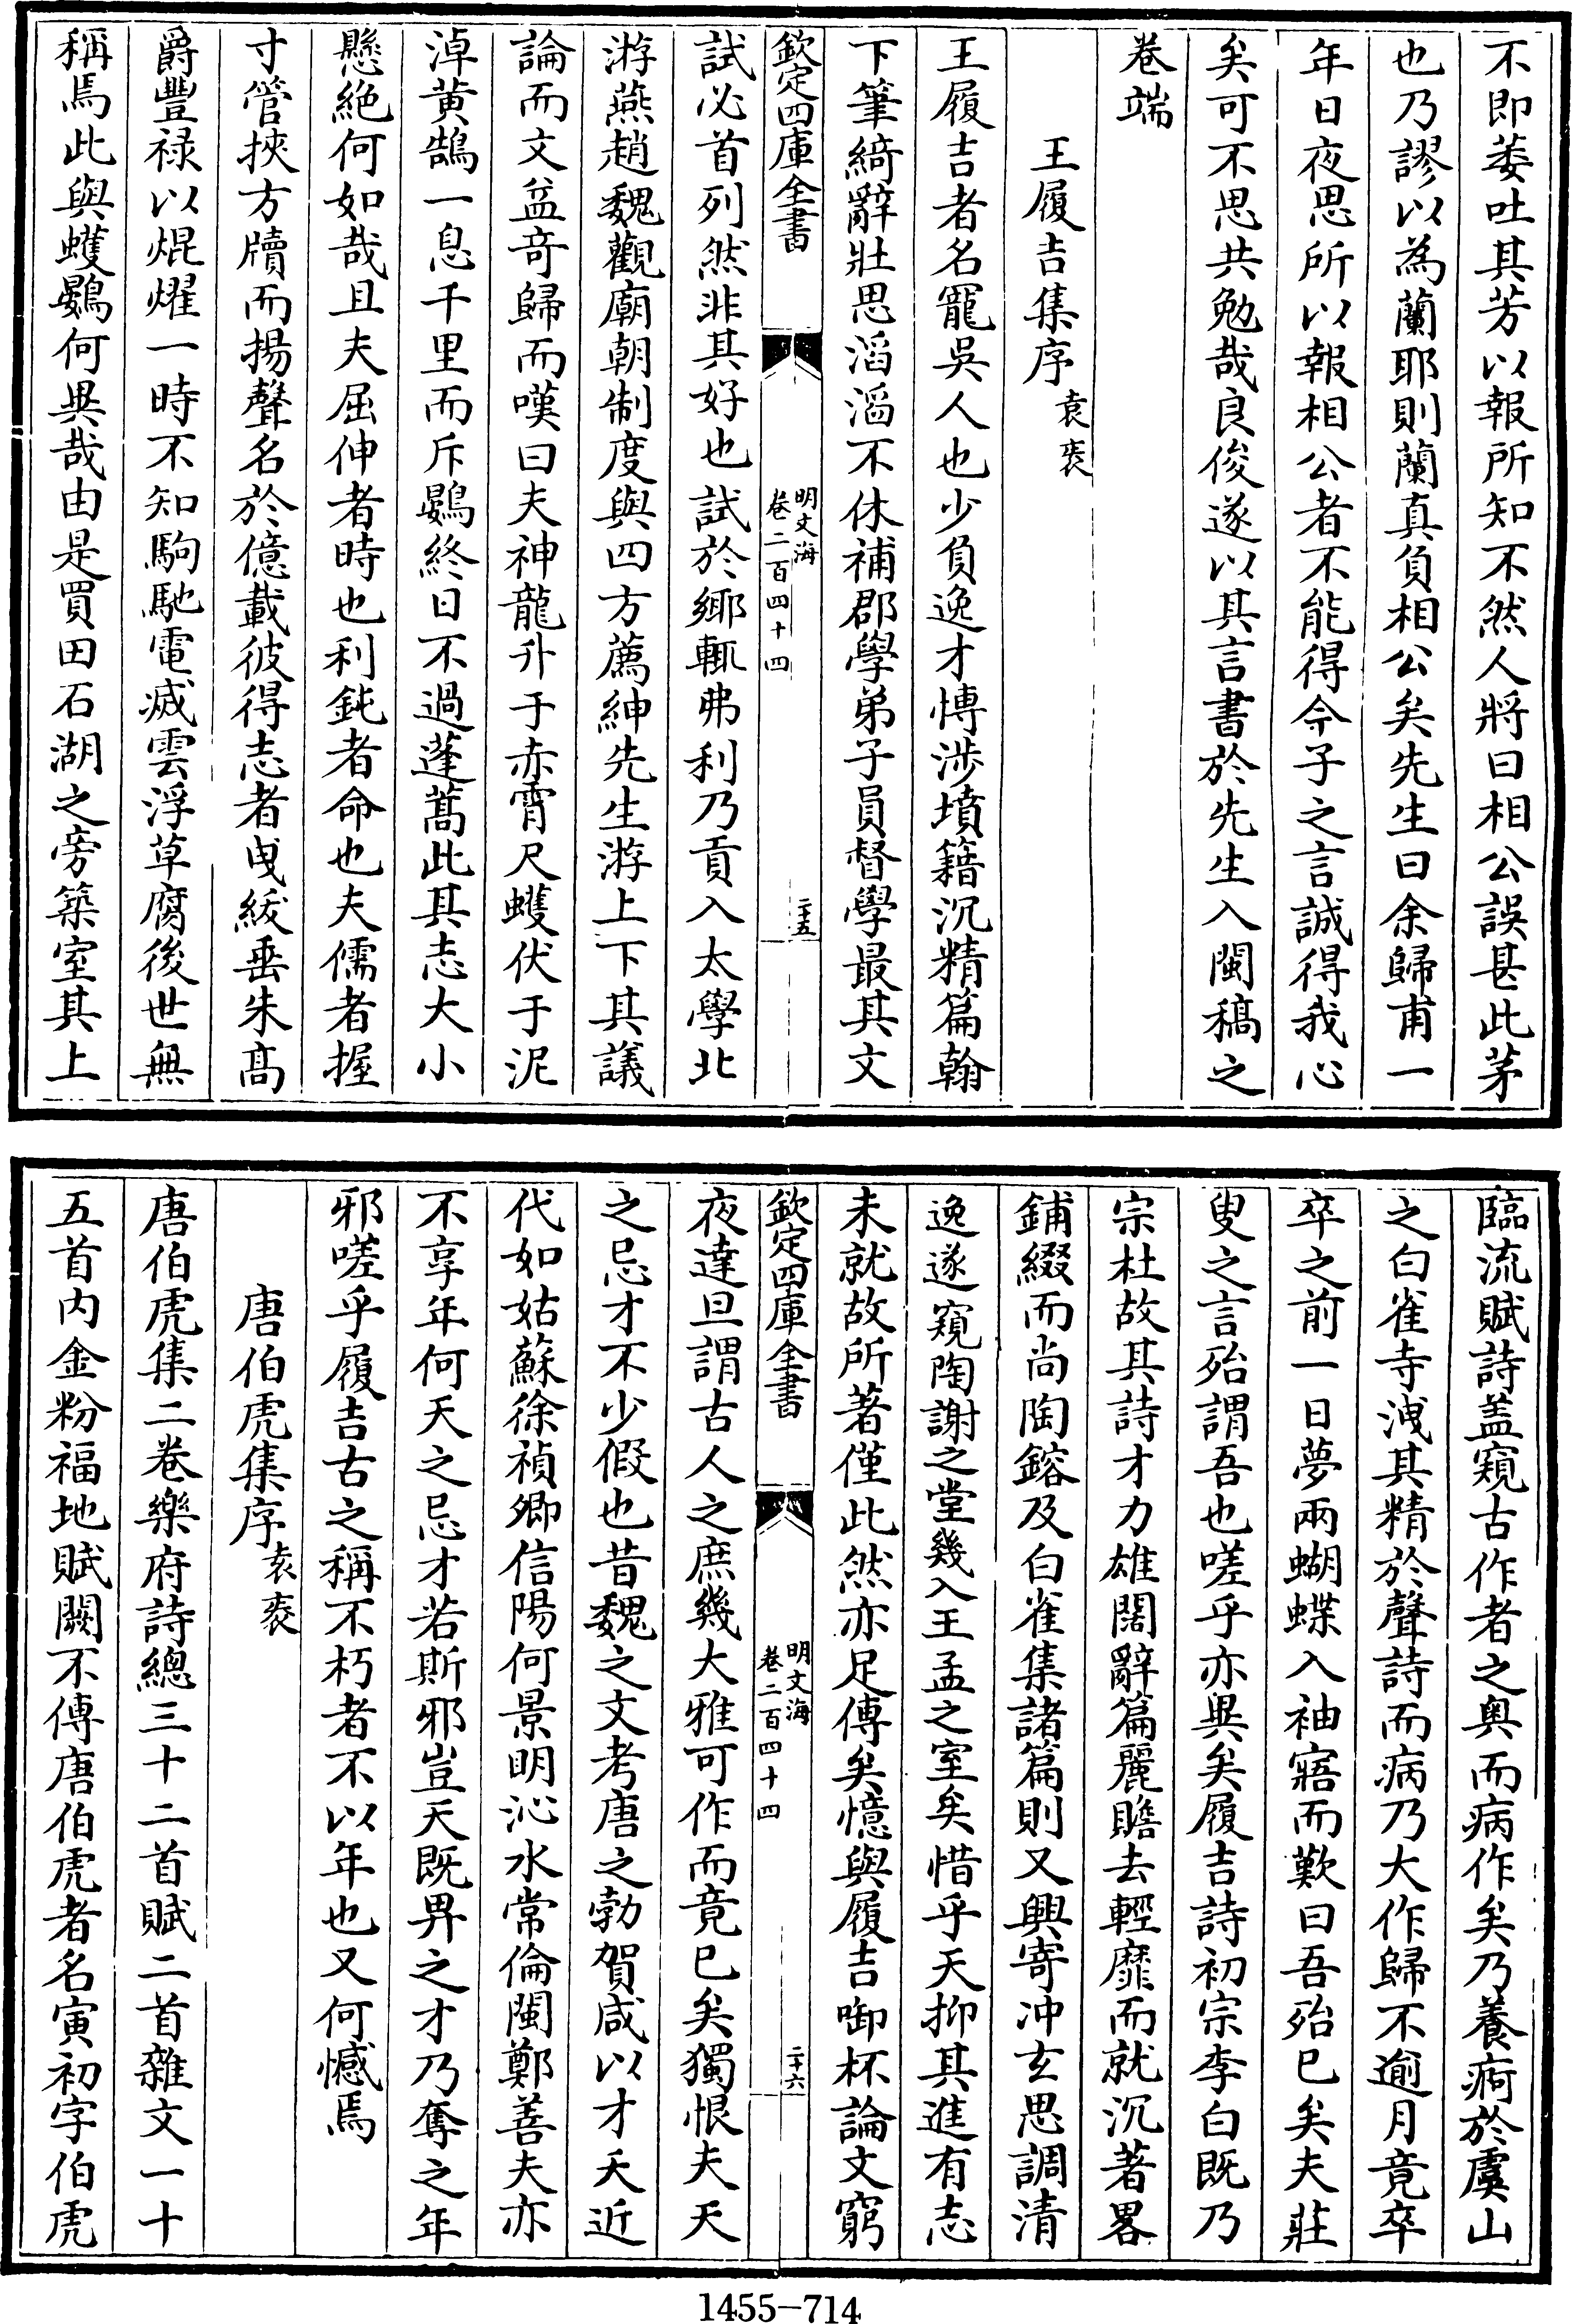 不即萎吐其芳以報所知不然人將曰相公誤甚此茅
也乃謬以為蘭耶則蘭真負相公矣先生曰余歸甫一
年日夜思所以報相公者不能得今子之言誠得我心
矣可不思共勉哉良俊遂以其言書於先生入閩稿之
卷端
王履吉集序 袁袠
王履吉者名寵吳人也少負逸才愽涉墳籍沉精篇翰
下筆綺辭壯思滔滔不休補郡學弟子員督學最其文
欽定四庫全書
明文海
卷二百四十四
二十五
試必首列然非其好也試於鄉輒弗利乃貢入太學北
游燕趙魏觀廟朝制度與四方薦紳先生游上下其議
論而文益竒歸而嘆曰夫神龍升于赤霄尺蠖伏于泥
淖黄鵠一息千里而斥鷃終日不過蓬蒿此其志大小
懸絶何如哉且夫屈伸者時也利鈍者命也夫儒者握
寸管挾方牘而揚聲名於億載彼得志者曳紱垂朱髙
爵豐禄以焜燿一時不知駒馳電㓕雲浮草腐後世無
稱焉此與蠖鷃何異哉由是買田石湖之旁築室其上
臨流賦詩盖窺古作者之奥而病作矣乃養疴於虞山
之白雀寺洩其精於聲詩而病乃大作歸不逾月竟卒
卒之前一日夢兩蝴蝶入袖寤而歎曰吾殆已矣夫莊
叟之言殆謂吾也嗟乎亦異矣履吉詩初宗李白既乃
宗杜故其詩才力雄闊辭篇麗贍去輕靡而就沉著畧
鋪綴而尚陶鎔及白雀集諸篇則又興寄冲玄思調清
逸遂窺陶謝之堂幾入王孟之室矣惜乎天抑其進有志
未就故所著僅此然亦足傳矣憶與履吉㗸杯論文窮
欽定四庫全書
明文海
卷二百四十四
二十六
夜達旦謂古人之庶幾大雅可作而竟已矣獨恨夫天
之忌才不少假也昔魏之文考唐之勃賀咸以才夭近
代如姑蘇徐禎卿信陽何景明沁水常倫閩鄭善夫亦
不享年何天之忌才若斯邪豈天既畀之才乃奪之年
邪嗟乎履吉古之稱不朽者不以年也又何憾焉
唐伯虎集序 袁袠
唐伯虎集二卷樂府詩總三十二首賦二首雜文一十
五首内金粉福地賦闕不傳唐伯虎者名寅初字伯虎
1455-714